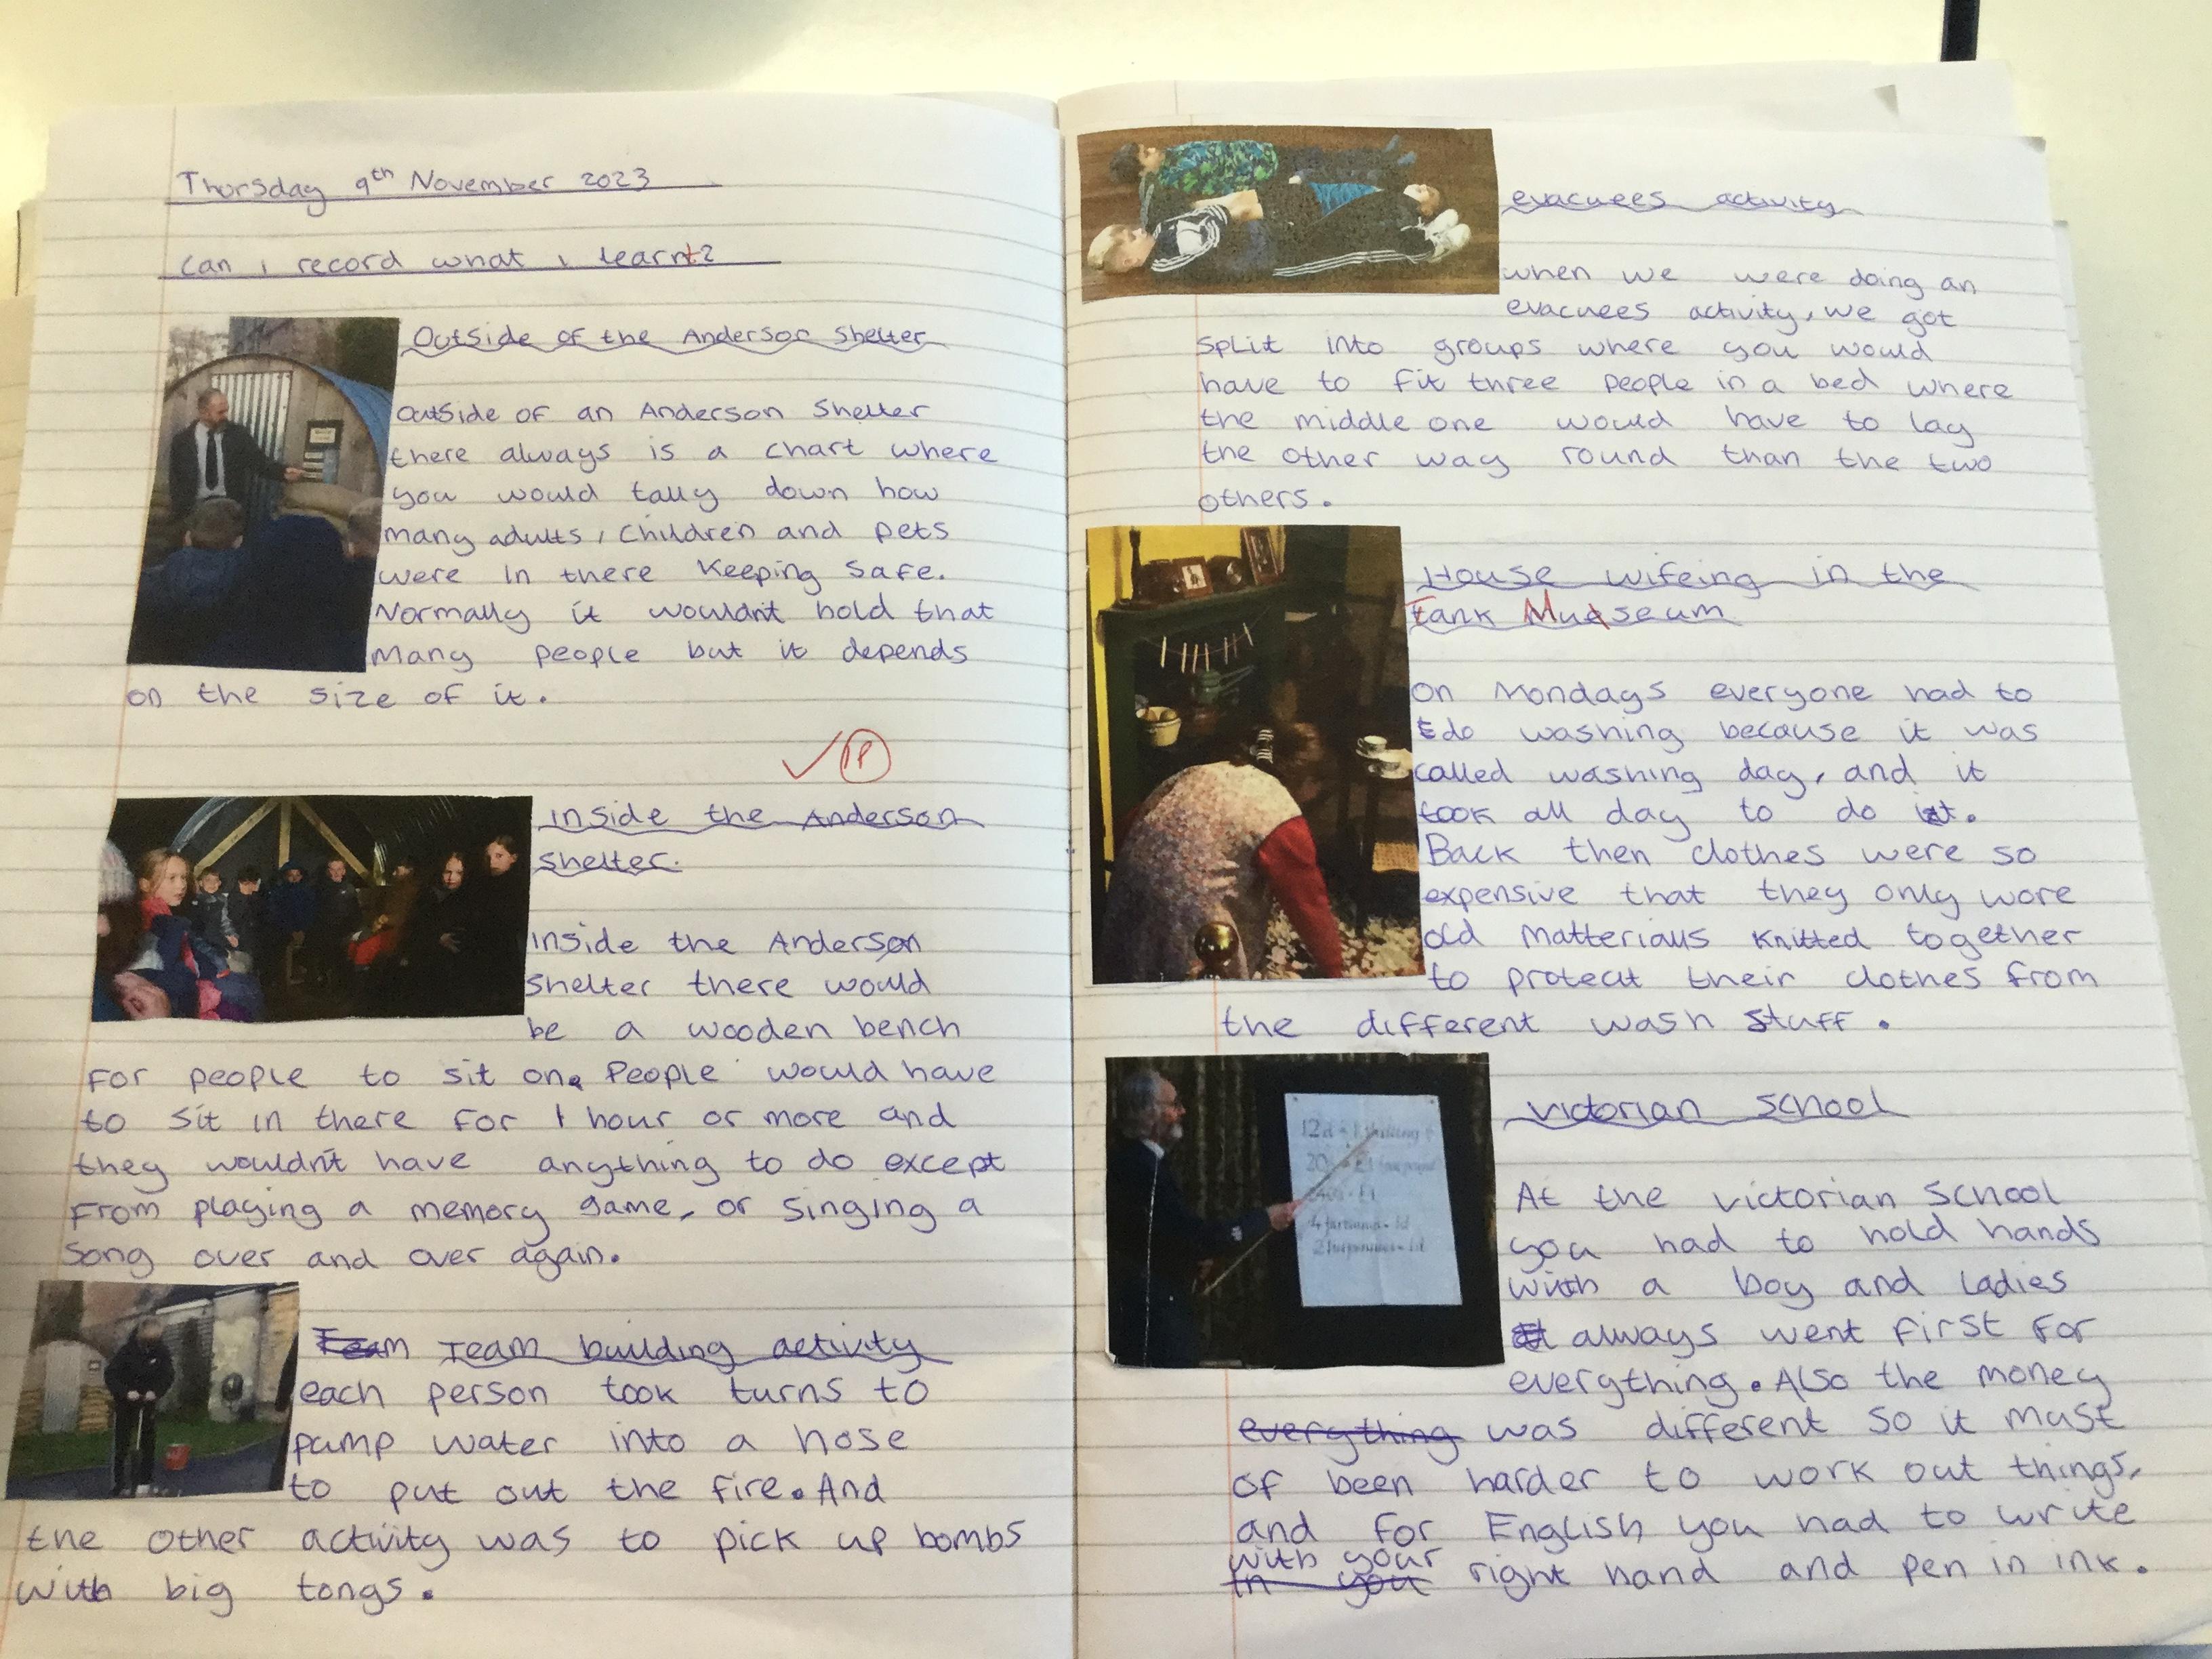 Thursday 9th November 2023
can i record what i learnt?
Outside of the Anderson Shelter
Outside of an Anderson Shelter
there always is a chart where
you would tally down how
many adults, Children and pets
were in there keeping safe.
Normally it wouldn't hold that
many people but it depends
on the size of it.
inside the Anderson
shelter.
Inside the Anderson
shelter there would
be a wooden bench
for people to sit on. People would have
to sit in there for 1 hour or more and
they wouldn't have anything to do except
from playing a memory game, or singing a
song over and over again.
Team Team building activity
each person took turns to
pump water into a hose
to put out the fire. And
the other activity was to pick up bombs
with big tongs.
evacuees activity
when we were doing an
evacuees activity, we got
split into groups where you would
have to fit three people in a bed where
the middle one would have to lay
the other way round than the two
others.
House wifeing in the
Tank Museum
on Mondays everyone had to
do washing because it was
called washing day, and it
took all day to do it.
Back then clothes were so
expensive that they only wore
old matterials knitted together
to protect their clothes from
the different wash stuff.
12d = 1 shilling
240d = £1
4 farthings = 1d
victorian school
At the victorian school
you had to hold hands
with a boy and ladies
always went first for
everything. Also the money
everything was different so it must
of been harder to work out things,
and for English you had to write
with your
in you right hand and pen in ink.